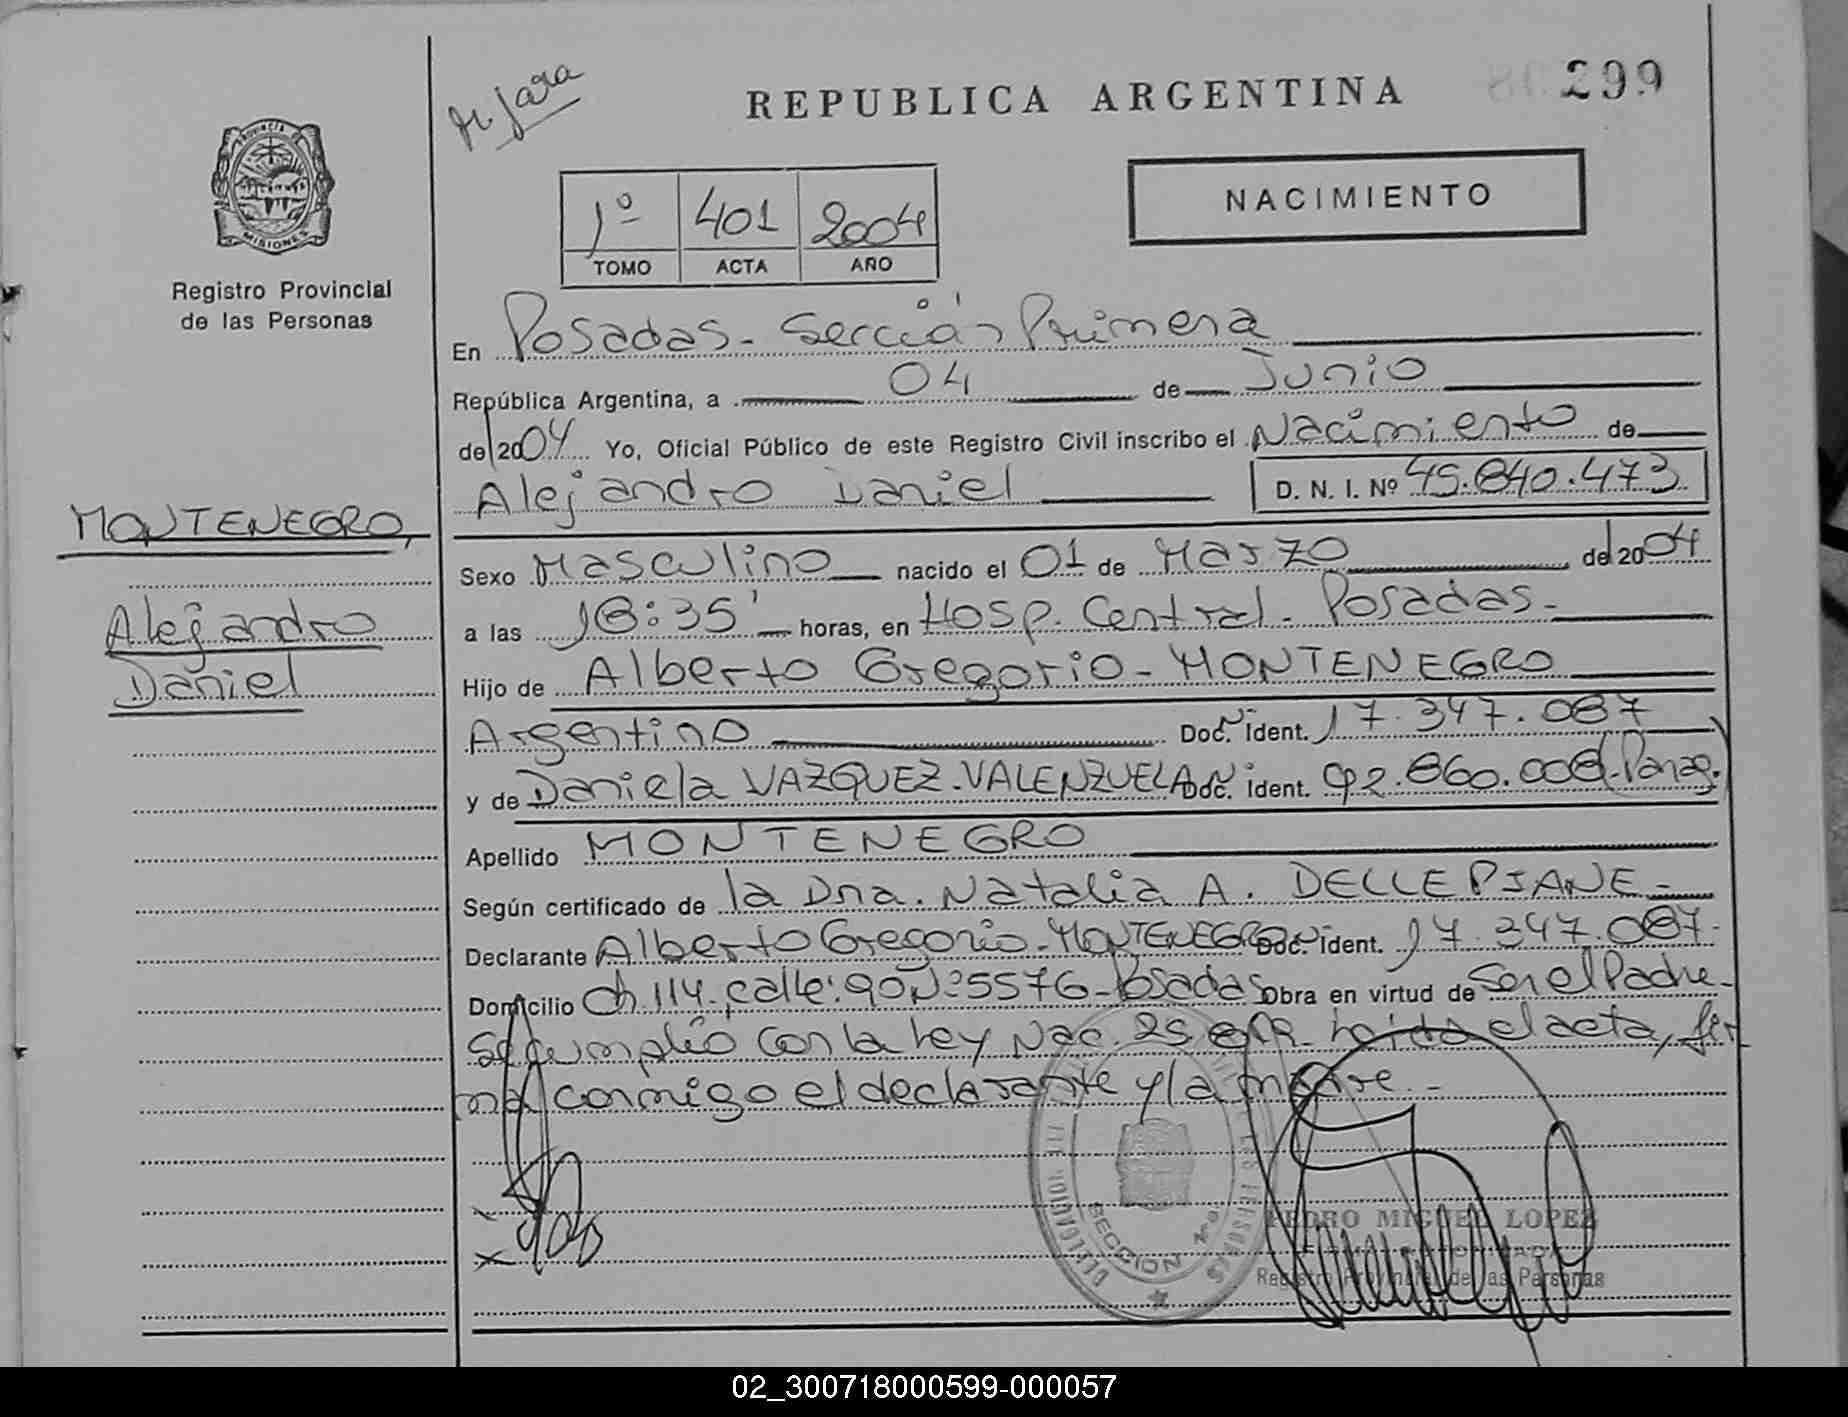 REPUBLICA ARGENTINA
299
PROVINCIA DE
MISIONES
Registro Provincial
de las Personas
1º 401 2004
TOMO ACTA AÑO
NACIMIENTO
En Posadas - Sección Primera
República Argentina, a 04 de Junio
de 2004 Yo, Oficial Público de este Registro Civil inscribo el Nacimiento de
Alejandro Daniel D. N. I. Nº 45.840.473
MONTENEGRO,
Alejandro
Daniel
Sexo Masculino nacido el 01 de Marzo de 2004
a las 18:35' horas, en Hosp. Central - Posadas -
Hijo de Alberto Gregorio - MONTENEGRO
Argentino Doc. Ident. 17.347.087
y de Daniela VAZQUEZ - VALENZUELA Doc. Ident. 92.860.008
Apellido MONTENEGRO
Según certificado de la Dra. Natalia A. DELLEPIANE -
Declarante Alberto Gregorio - MONTENEGRO Doc. Ident. 17.347.087 -
Domicilio Ch. 114 - calle: 90 Nº 5576 - Posadas Obra en virtud de Ser el Padre -
Se cumplió con la Ley Nac. el acta, fir
ma conmigo el declarante y la madre. -
SECCION
PEDRO MIGUEL LOPEZ
Registro Provincial de las Personas
02_300718000599-000057